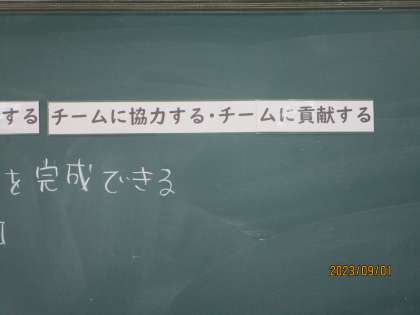 する チームに協力する・チームに貢献する
を完成できる
2023/09/01